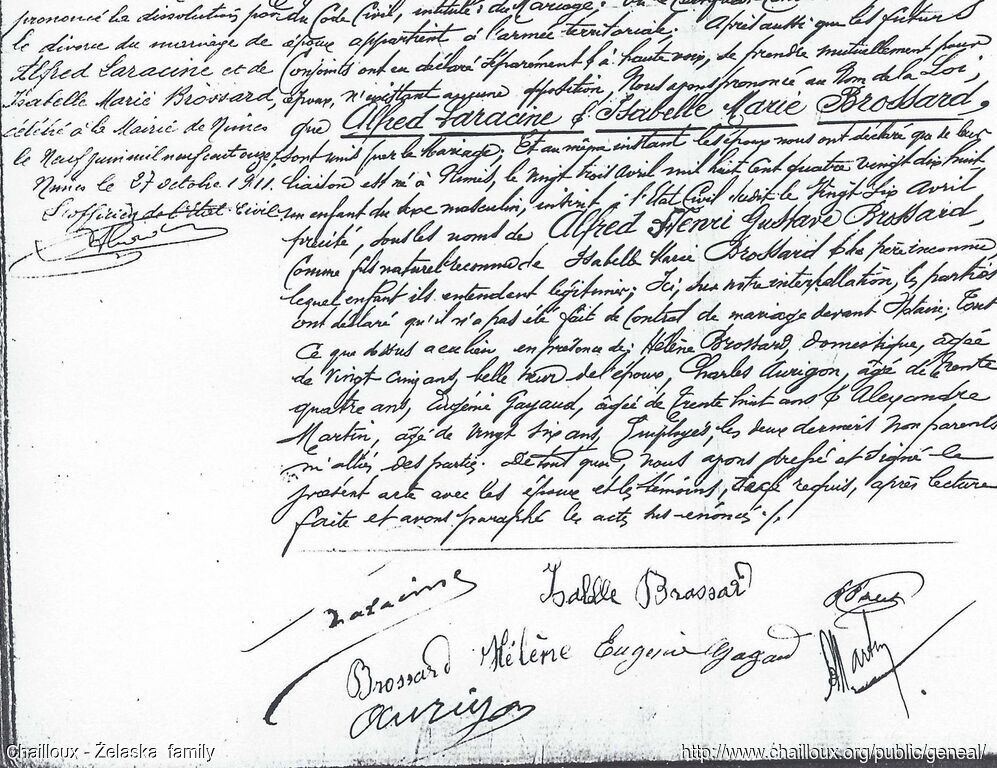 prononcé la dissolution par
le divorce du mariage de
Alfred Saracine et de
Isabelle Marie Brossard,
célébré à la Mairie de Nimes
le Neuf juin mil neuf cent onze,
Nimes le 27 octobre 1911.
L'officier de l'état-Civil
du Code Civil, intitulé: du Mariage.
époux appartient à l'armée territoriale. Après aussi que les futurs
Conjoints ont eu déclaré séparément & à haute voix, se prendre mutuellement pour
époux, n'existant aucune opposition, Nous avons prononcé au Nom de la Loi,
que Alfred Saracine & Isabelle Marie Brossard,
sont unis par le Mariage; Et au même instant les époux nous ont déclaré que de leur
liaison est né à Nimes, le vingt trois avril mil huit cent quatre vingt dix huit
un enfant du sexe masculin, inscrit à l'Etat Civil le Vingt Six Avril
précité, sous les noms de Alfred Henri Gustave Brossard,
Comme fils naturel reconnu de Isabelle Marie Brossard & de père inconnu
lequel enfant ils entendent légitimer; Ici, sur notre interpellation, les parties
ont déclaré qu'il n'a pas été fait de Contrat de mariage devant Notaire; Tout
Ce que dessus a eu lieu en présence de; Hélène Brossard, domestique, agée
de Vingt cinq ans, belle sœur de l'époux, Charles Aurigon, âgé de trente
quatre ans, Eugénie Gayaud, âgée de trente huit ans & Alexandre
Martin, âgé de vingt six ans, Employés, les deux derniers non parents
ni alliés des parties. De tout quoi, nous avons dressé et signé le
présent acte avec les époux et les témoins, de ce requis, après lecture
faite et avons paraphé les actes sus-énoncés ./.
Saracine
Isabelle Brossard
Brossard Hélène Eugénie Gayaud
Martin
Aurigon
Chailloux - Żelaska family
http://www.chailloux.org/public/geneal/